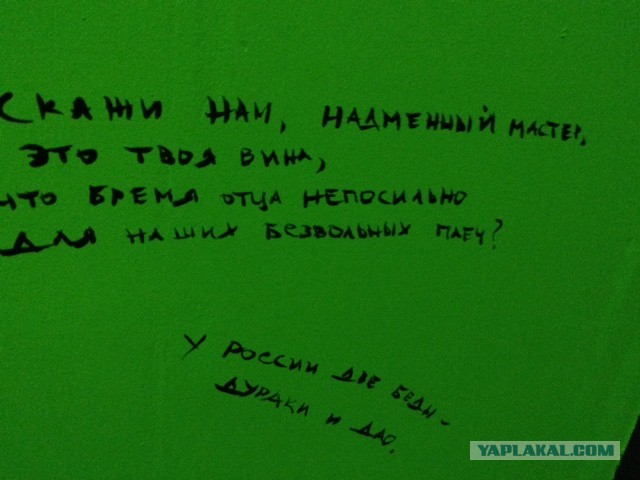 СКАЖИ НАМ, НАДМЕННЫЙ МАСТЕР,
ЭТО ТВОЯ ВИНА,
ЧТО БРЕМЯ ОТЦА НЕПОСИЛЬНО
ДЛЯ НАШИХ БЕЗВОЛЬНЫХ ПЛЕЧ?
У РОССИИ ДВЕ БЕДЫ -
ДУРАКИ И ДАО.
YAPLAKAL.COM